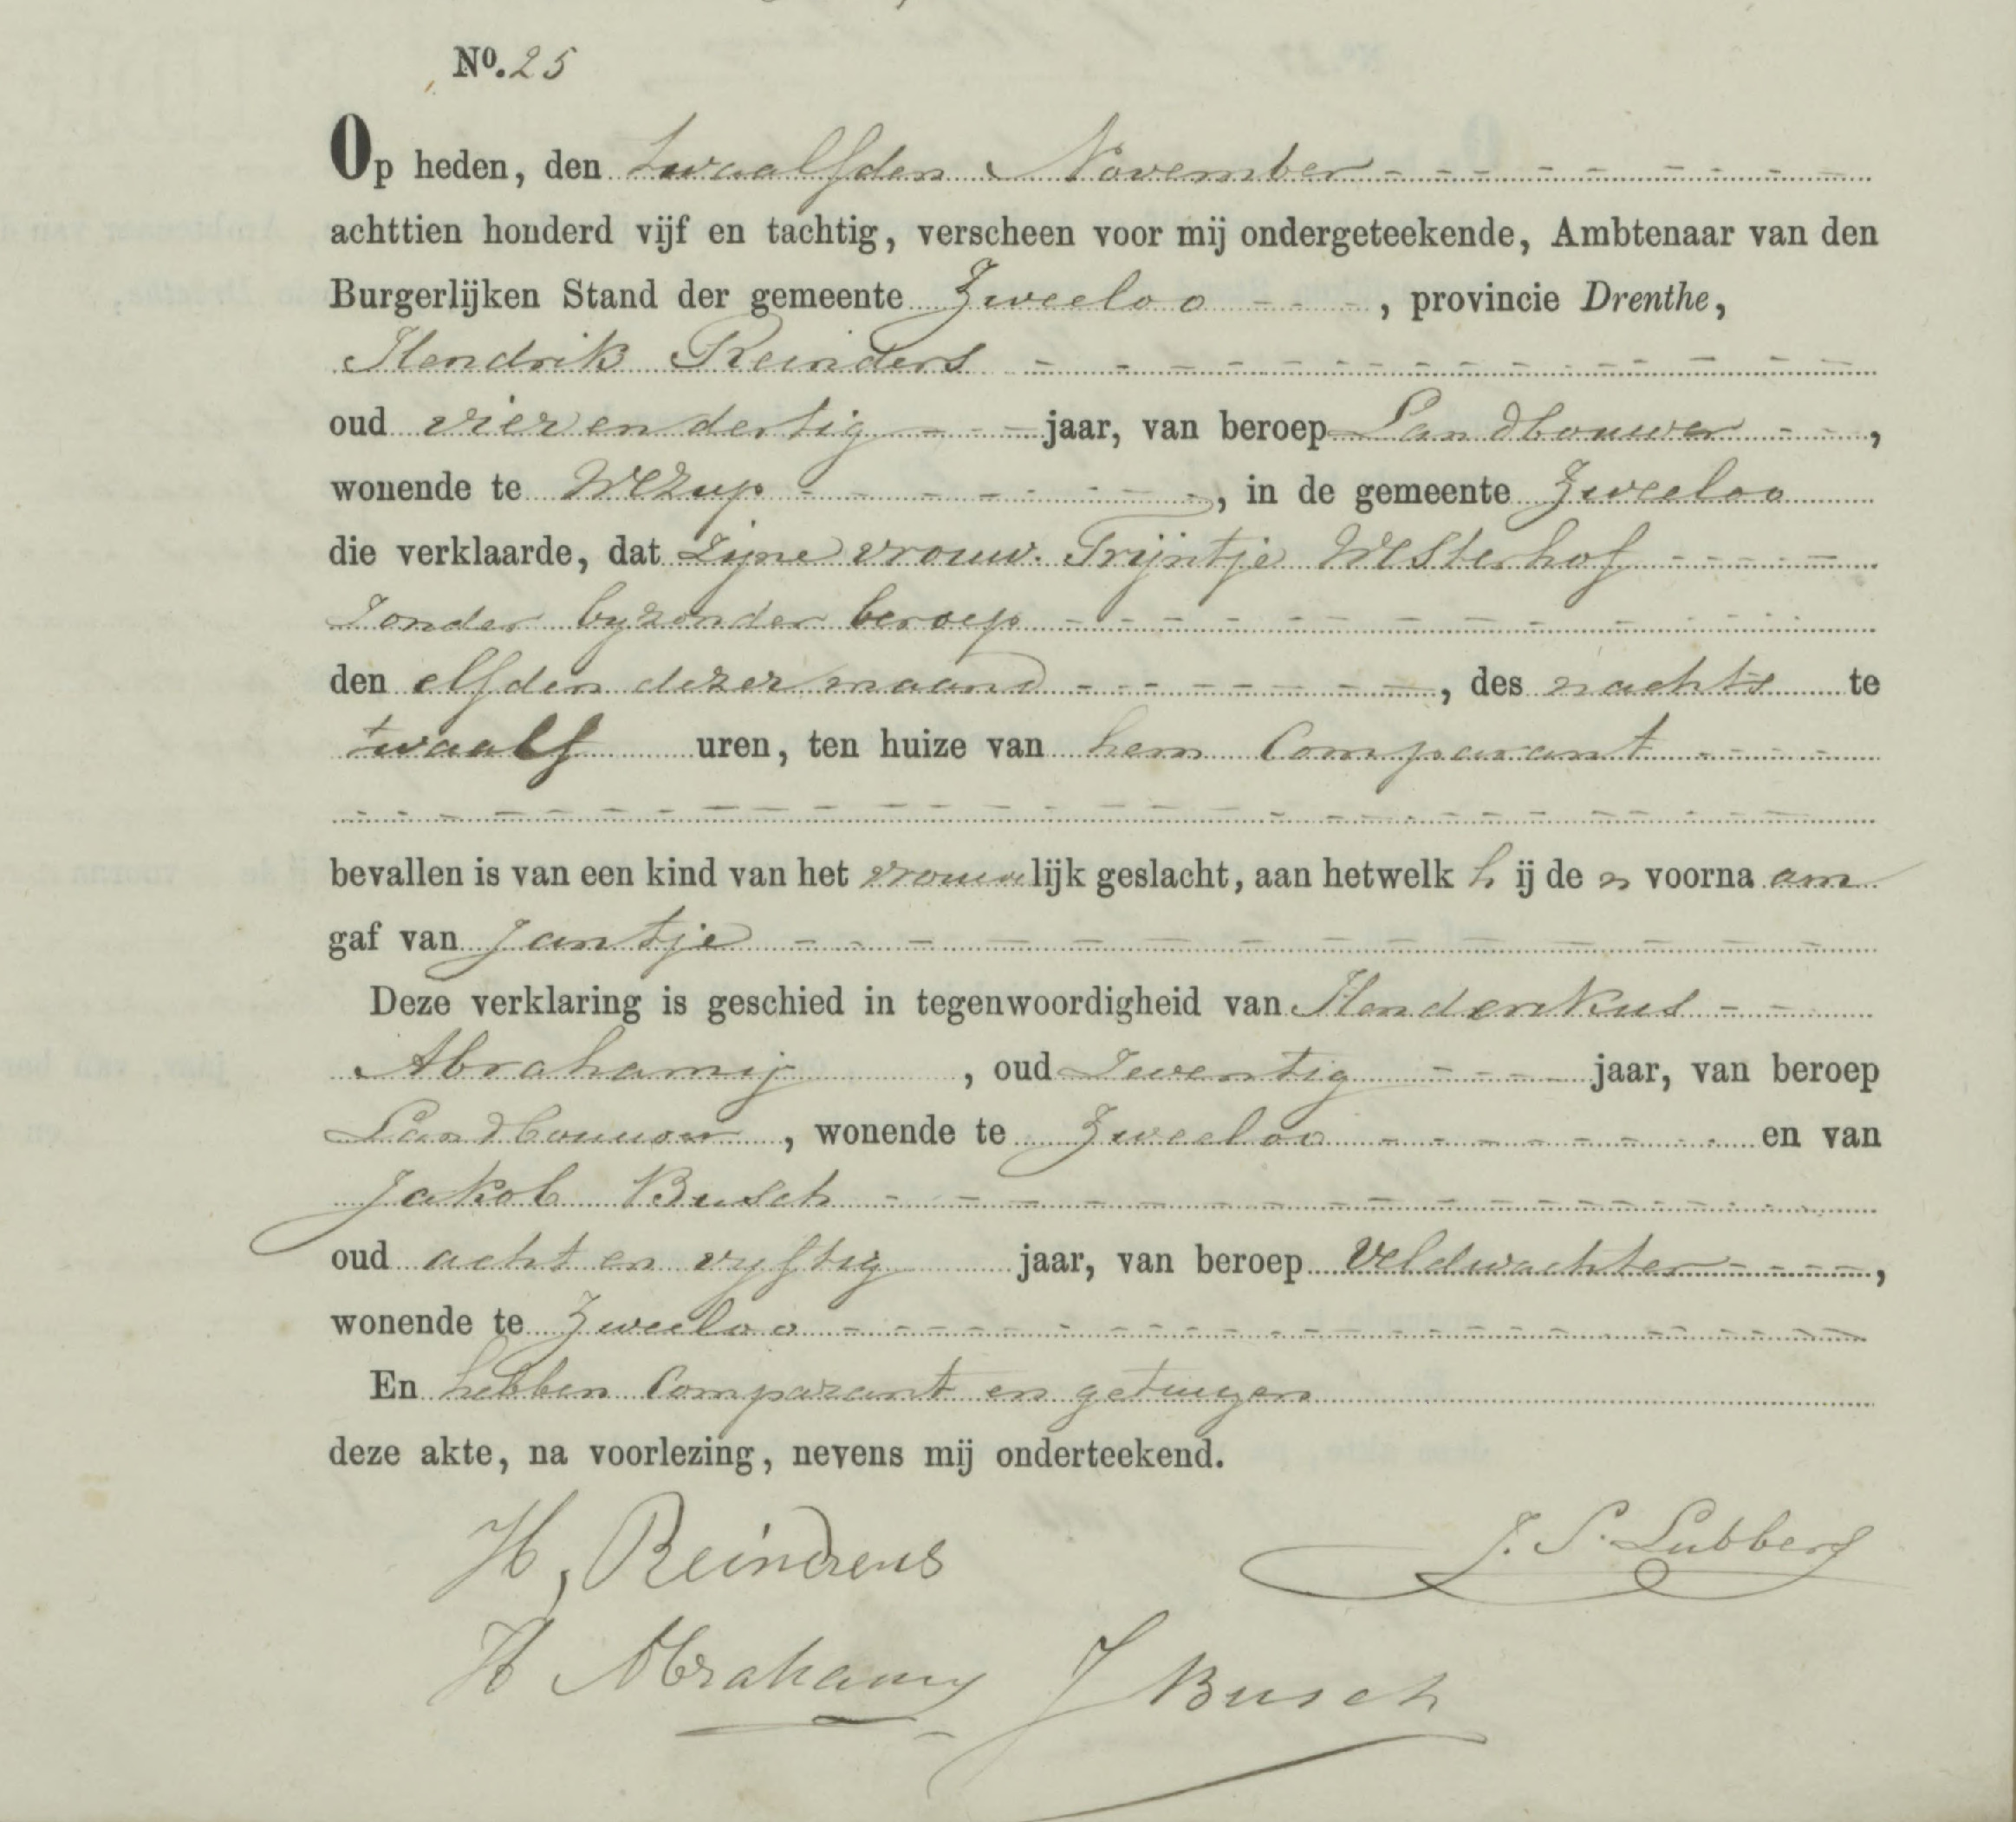 No. 25
Op heden, den twaalfden November
achttien honderd vijf en tachtig, verscheen voor mij ondergeteekende, Ambtenaar van den
Burgerlijken Stand der gemeente Zweeloo, provincie Drenthe,
Hendrik Reinders
oud vier en dertig jaar, van beroep Landbouwer,
wonende te Wezup, in de gemeente Zweeloo
die verklaarde, dat zijne vrouw Trijntje Westerhof
Zonder byzonder beroep
den elfden dezer maand, des nachts te
twaalf uren, ten huize van hem Comparant
bevallen is van een kind van het vrouwelijk geslacht, aan hetwelk hij den voornaam
gaf van Jantje
Deze verklaring is geschied in tegenwoordigheid van Henderikus
Abrahamij, oud Zeventig jaar, van beroep
Landbouwer, wonende te Zweeloo en van
Jakob Busch
oud acht en vyftig jaar, van beroep Veldwachter,
wonende te Zweeloo
En hebben Comparant en getuigen
deze akte, na voorlezing, nevens mij onderteekend.
H, Reinders J. S. Lubbers
H Abrahamy J Busch